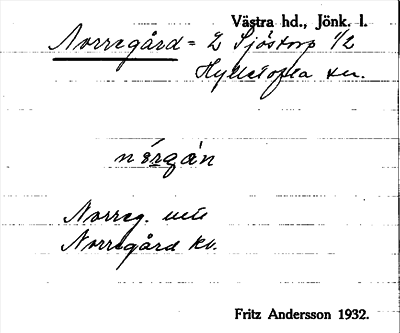 Västra hd., Jönk. l.
Norregård = 2 Sjöstorp 1/2
Hylletofta sn.
nórgán
Norreg.
Norregård kv.
Fritz Andersson 1932.